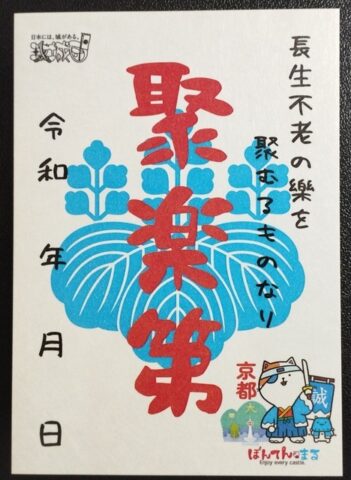 日本には、城がある。
長生不老の樂を
聚むるものなり
聚楽第
令和 年 月 日
京都
大
誠
ぼんてんまる
Enjoy every castle.